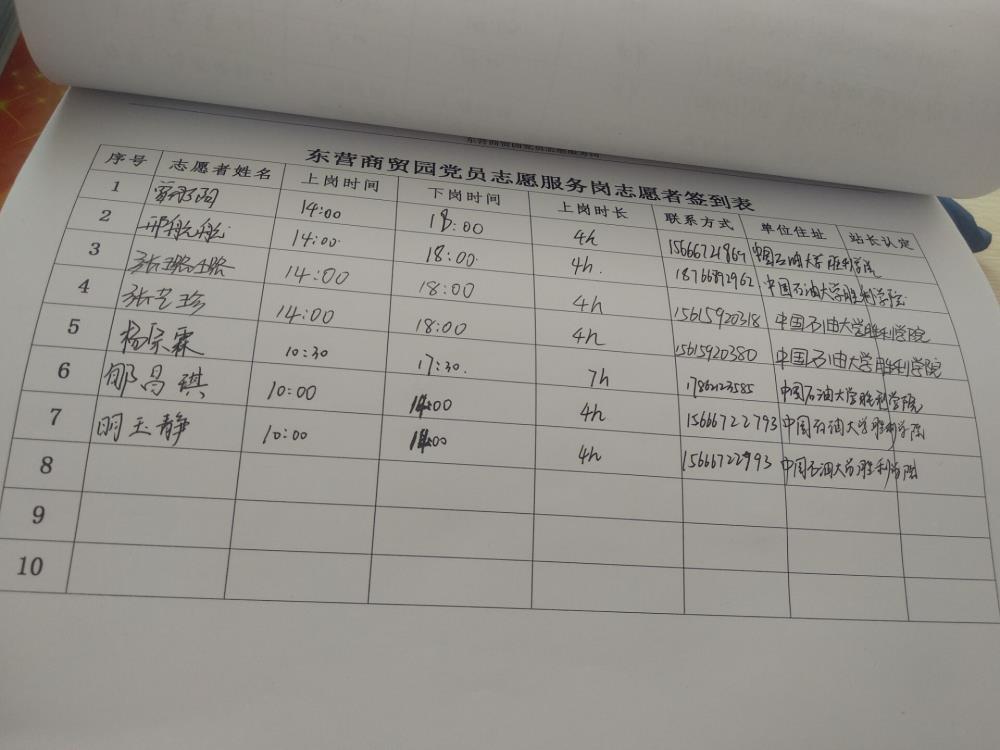 东营商贸园党员志愿服务岗志愿者签到表
序号 志愿者姓名 上岗时间 下岗时间 上岗时长 联系方式 单位住址 站长认定
1 14:00 18:00 4h 中国石油大学胜利学院
2 邢航航 14:00 18:00 4h. 18766892962 中国石油大学胜利学院
3 张璐璐 14:00 18:00 4h 15615920318 中国石油大学胜利学院
4 张艺珍 14:00 18:00 4h 15615920380 中国石油大学胜利学院
5 杨宗霖 10:30 17:30. 7h 中国石油大学胜利学院
6 郇昌琪 10:00 14:00 4h 15666722793 中国石油大学胜利学院
7 明玉静 10:00 14:00 4h 15666722993 中国石油大学胜利学院
8
9
10